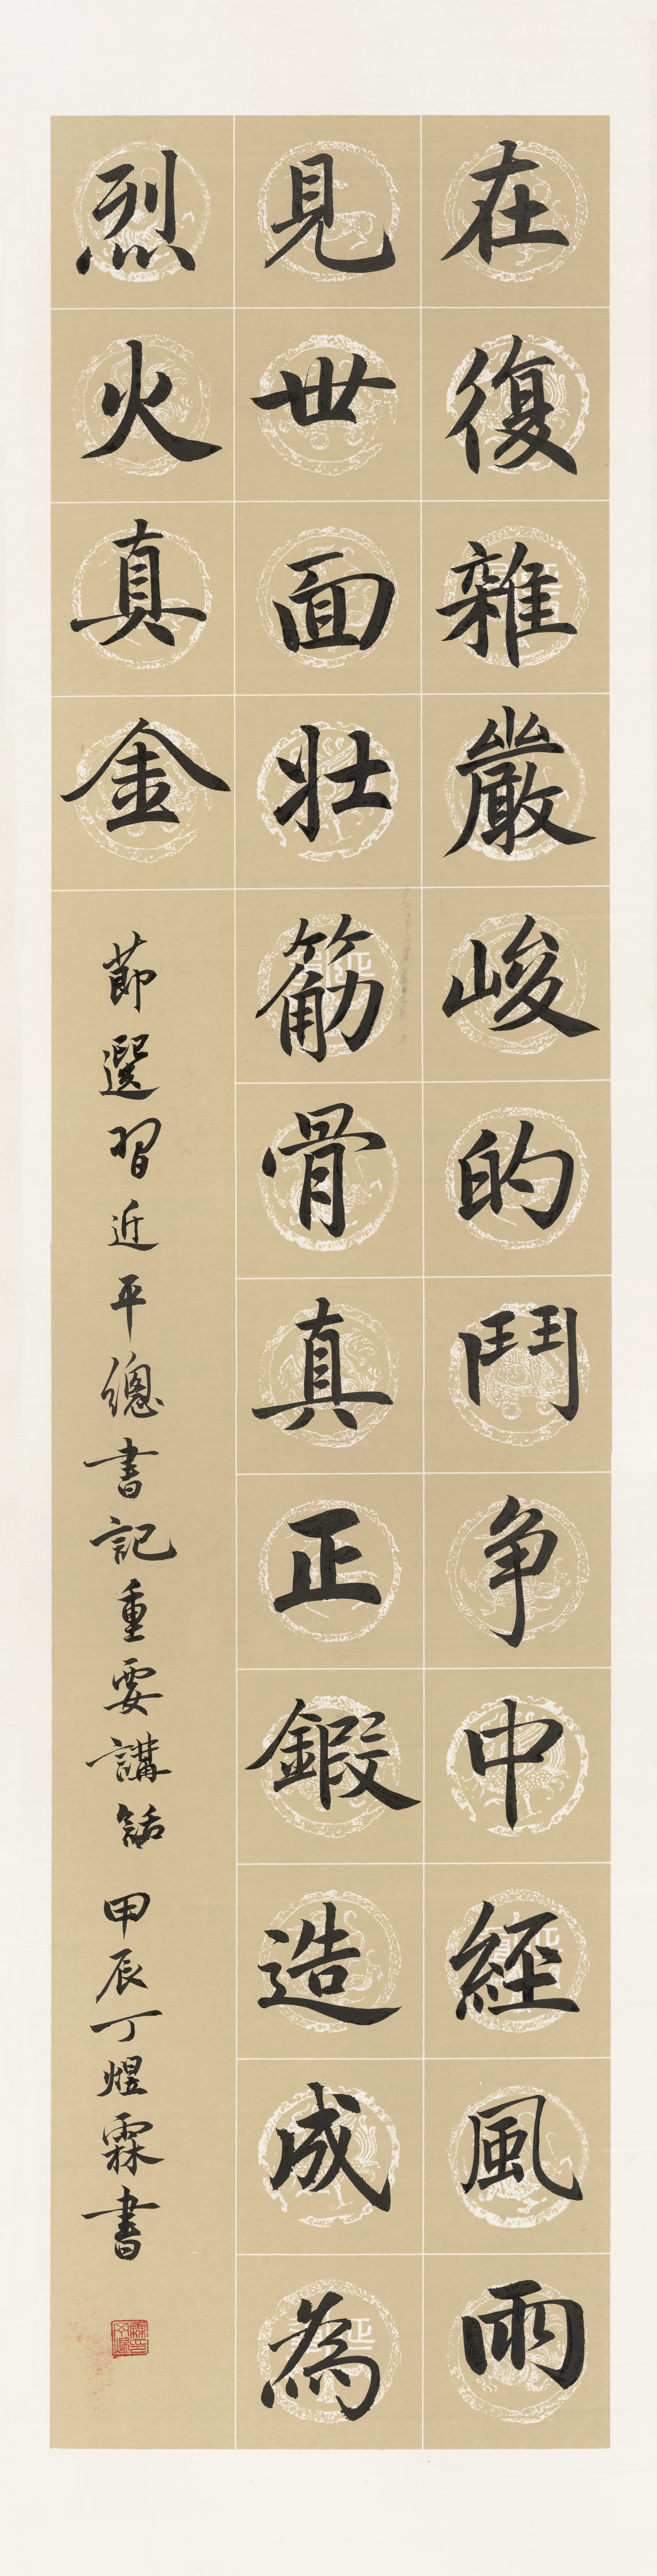 在復雜嚴峻的鬥争中經風雨
見世面壯筋骨真正鍛造成為
烈火真金
節選習近平總書記重要講話 甲辰丁煜霖書